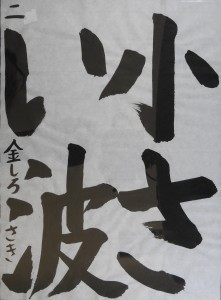 小さ
い波
二
金しろさき